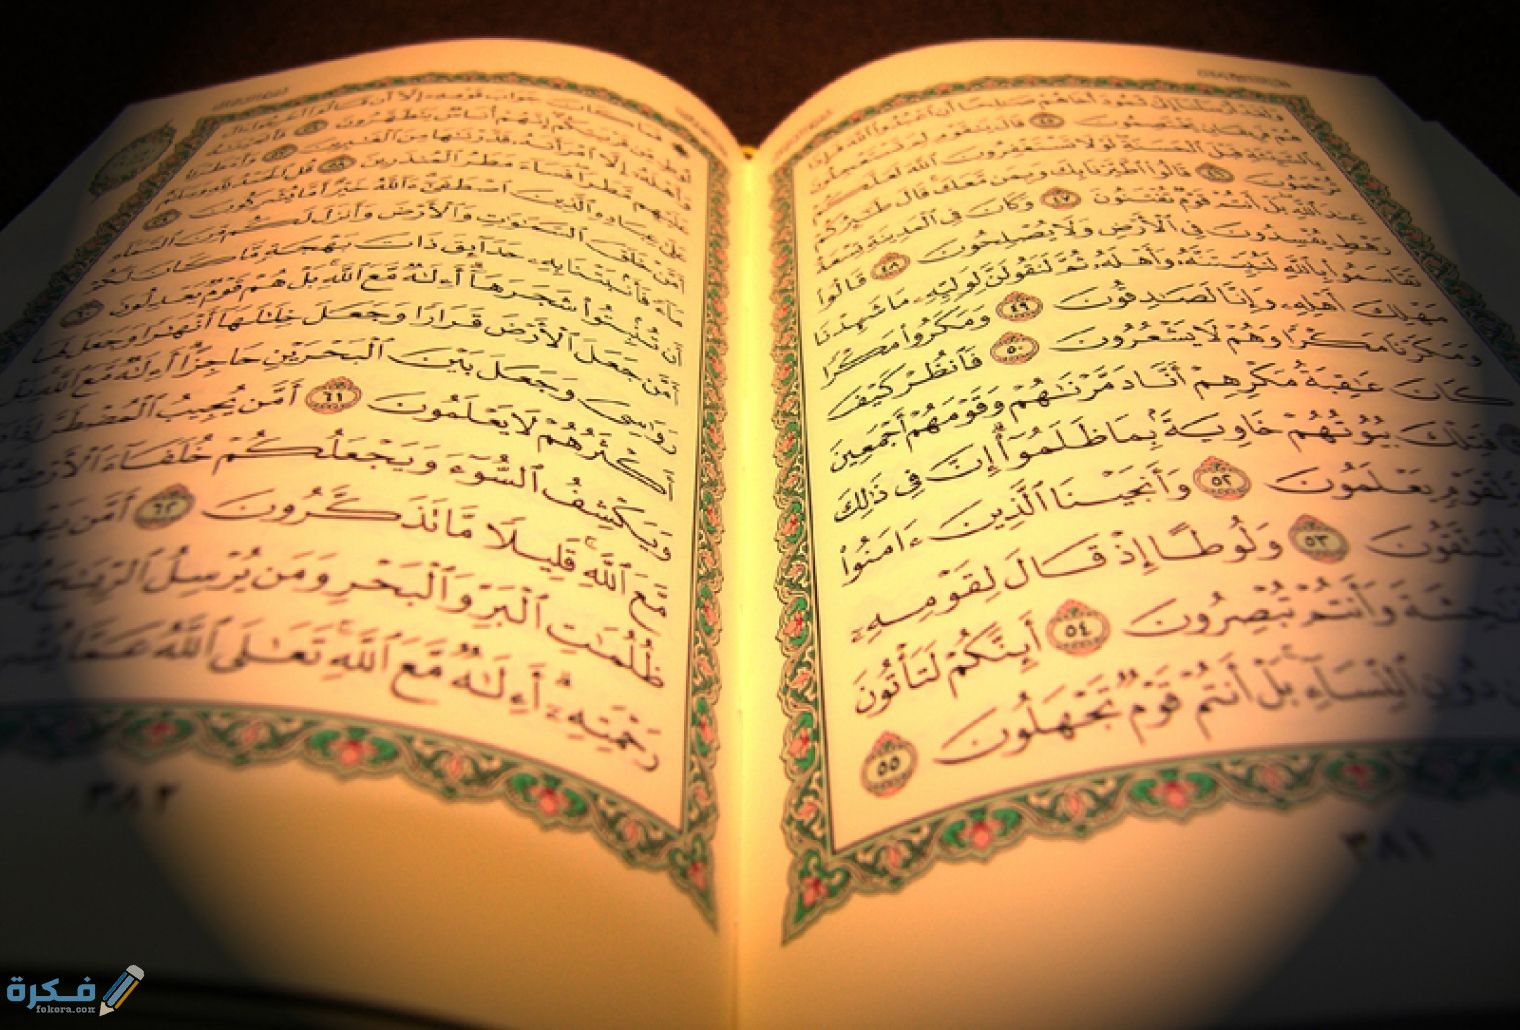 وَلَقَدْ أَرْسَلْنَآ إِلَىٰ ثَمُودَ أَخَاهُمْ صَٰلِحًا أَنِ ٱعْبُدُوا۟ ٱللَّهَ فَإِذَا
هُمْ فَرِيقَانِ يَخْتَصِمُونَ ٤٥ قَالَ يَٰقَوْمِ لِمَ تَسْتَعْجِلُونَ
بِٱلسَّيِّئَةِ قَبْلَ ٱلْحَسَنَةِ لَوْلَا تَسْتَغْفِرُونَ ٱللَّهَ لَعَلَّكُمْ
تُرْحَمُونَ ٤٦ قَالُوا۟ ٱطَّيَّرْنَا بِكَ وَبِمَن مَّعَكَ قَالَ طَٰٓئِرُكُمْ
عِندَ ٱللَّهِ بَلْ أَنتُمْ قَوْمٌ تُفْتَنُونَ ٤٧ وَكَانَ فِى ٱلْمَدِينَةِ تِسْعَةُ
رَهْطٍ يُفْسِدُونَ فِى ٱلْأَرْضِ وَلَا يُصْلِحُونَ ٤٨ قَالُوا۟
تَقَاسَمُوا۟ بِٱللَّهِ لَنُبَيِّتَنَّهُۥ وَأَهْلَهُۥ ثُمَّ لَنَقُولَنَّ لِوَلِيِّهِۦ مَا شَهِدْنَا
مَهْلِكَ أَهْلِهِۦ وَإِنَّا لَصَٰدِقُونَ ٤٩ وَمَكَرُوا۟ مَكْرًا
وَمَكَرْنَا مَكْرًا وَهُمْ لَا يَشْعُرُونَ ٥٠ فَٱنظُرْ كَيْفَ
كَانَ عَٰقِبَةُ مَكْرِهِمْ أَنَّا دَمَّرْنَٰهُمْ وَقَوْمَهُمْ أَجْمَعِينَ
فَتِلْكَ بُيُوتُهُمْ خَاوِيَةًۢ بِمَا ظَلَمُوٓا۟ إِنَّ فِى ذَٰلِكَ
لِّقَوْمٍ يَعْلَمُونَ ٥٢ وَأَنجَيْنَا ٱلَّذِينَ ءَامَنُوا۟
يَتَّقُونَ ٥٣ وَلُوطًا إِذْ قَالَ لِقَوْمِهِۦٓ
ٱلْفَٰحِشَةَ وَأَنتُمْ تُبْصِرُونَ ٥٤ أَئِنَّكُمْ لَتَأْتُونَ
دُونِ ٱلنِّسَآءِ بَلْ أَنتُمْ قَوْمٌ تَجْهَلُونَ ٥٥
٣٨١
فَمَا كَانَ جَوَابَ قَوْمِهِۦٓ إِلَّآ أَن قَالُوٓا۟ أَخْرِجُوٓا۟ ءَالَ
لُوطٍ مِّن قَرْيَتِكُمْ إِنَّهُمْ أُنَاسٌ يَتَطَهَّرُونَ ٥٦ فَأَنجَيْنَٰهُ
وَأَهْلَهُۥٓ إِلَّا ٱمْرَأَتَهُۥ قَدَّرْنَٰهَا مِنَ ٱلْغَٰبِرِينَ ٥٧ وَأَمْطَرْنَا
عَلَيْهِم مَّطَرًا فَسَآءَ مَطَرُ ٱلْمُنذَرِينَ ٥٨ قُلِ ٱلْحَمْدُ لِلَّهِ وَسَلَٰمٌ
عَلَىٰ عِبَادِهِ ٱلَّذِينَ ٱصْطَفَىٰٓ ءَآللَّهُ خَيْرٌ أَمَّا يُشْرِكُونَ ٥٩
أَمَّنْ خَلَقَ ٱلسَّمَٰوَٰتِ وَٱلْأَرْضَ وَأَنزَلَ لَكُم مِّنَ ٱلسَّمَآءِ
مَآءً فَأَنۢبَتْنَا بِهِۦ حَدَآئِقَ ذَاتَ بَهْجَةٍ مَّا كَانَ لَكُمْ
أَن تُنۢبِتُوا۟ شَجَرَهَآ أَءِلَٰهٌ مَّعَ ٱللَّهِ بَلْ هُمْ قَوْمٌ يَعْدِلُونَ ٦٠
أَمَّن جَعَلَ ٱلْأَرْضَ قَرَارًا وَجَعَلَ خِلَٰلَهَآ أَنْهَٰرًا وَجَعَلَ لَهَا
رَوَٰسِىَ وَجَعَلَ بَيْنَ ٱلْبَحْرَيْنِ حَاجِزًا أَءِلَٰهٌ مَّعَ ٱللَّهِ بَلْ
أَكْثَرُهُمْ لَا يَعْلَمُونَ ٦١ أَمَّن يُجِيبُ ٱلْمُضْطَرَّ إِذَا
وَيَكْشِفُ ٱلسُّوٓءَ وَيَجْعَلُكُمْ خُلَفَآءَ ٱلْأَرْضِ
مَّعَ ٱللَّهِ قَلِيلًا مَّا تَذَكَّرُونَ ٦٢ أَمَّن
ظُلُمَٰتِ ٱلْبَرِّ وَٱلْبَحْرِ وَمَن يُرْسِلُ ٱلرِّيَٰحَ
رَحْمَتِهِۦٓ أَءِلَٰهٌ مَّعَ ٱللَّهِ تَعَٰلَى ٱللَّهُ عَمَّا
٣٨٢
فكرة
fekera.com